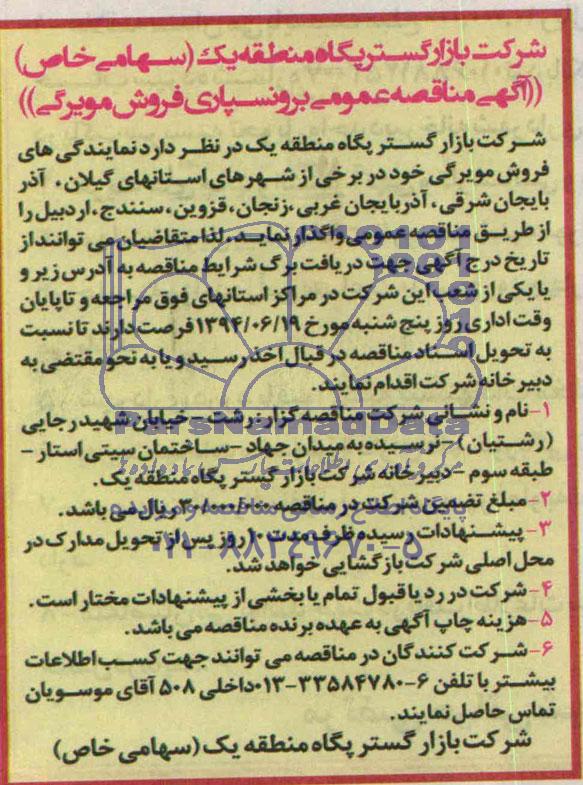 شرکت بازار گستر پگاه منطقه یک (سهامی خاص)
((آگهی مناقصه عمومی برونسپاری فروش مویرگی))
شرکت بازار گستر پگاه منطقه یک در نظر دارد نمایندگی های
فروش مویرگی خود در برخی از شهرهای استانهای گیلان، آذر
بایجان شرقی، آذربایجان غربی، زنجان، قزوین، سنندج، اردبیل را
از طریق مناقصه عمومی واگذار نماید. لذا متقاضیان می توانند از
تاریخ درج آگهی جهت دریافت برگ شرایط مناقصه به آدرس زیر و
یا یکی از شعب این شرکت در مراکز استانهای فوق مراجعه و تا پایان
وقت اداری روز پنج شنبه مورخ ۱۳۹۴/۰۶/۱۹ فرصت دارند تا نسبت
به تحویل اسناد مناقصه در قبال اخذ رسید و یا به نحو مقتضی به
دبیرخانه شرکت اقدام نمایند.
۱- نام و نشانی شرکت مناقصه گزار: رشت - خیابان شهید رجایی
(رشتیان) - نرسیده به میدان جهاد - ساختمان سیتی استار -
طبقه سوم - دبیرخانه شرکت بازار گستر پگاه منطقه یک.
۲- مبلغ تضمین شرکت در مناقصه ریال می باشد.
۳- پیشنهادات رسیده ظرف مدت ۱۰ روز پس از تحویل مدارک در
محل اصلی شرکت بازگشایی خواهد شد.
۴- شرکت در رد یا قبول تمام یا بخشی از پیشنهادات مختار است.
۵- هزینه چاپ آگهی به عهده برنده مناقصه می باشد.
۶- شرکت کنندگان در مناقصه می توانند جهت کسب اطلاعات
بیشتر با تلفن ۶-۳۳۵۸۴۷۸۰-۰۱۳ داخلی ۵۰۸ آقای موسویان
تماس حاصل نمایند.
شرکت بازار گستر پگاه منطقه یک (سهامی خاص)
ParsNamadData
۰۲۱-۸۸۳۴۹۶۷۰-۵